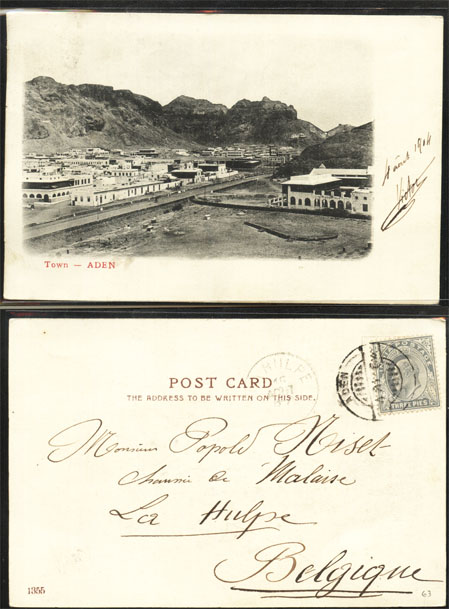 4 août 1904
Victor
Town — ADEN
LA HULPE
POST CARD
THE ADDRESS TO BE WRITTEN ON THIS SIDE.
ADEN
THREE PIES
Monsieur Popold Niset
chaussée de Malaise
La Hulpe
Belgique
1355
63